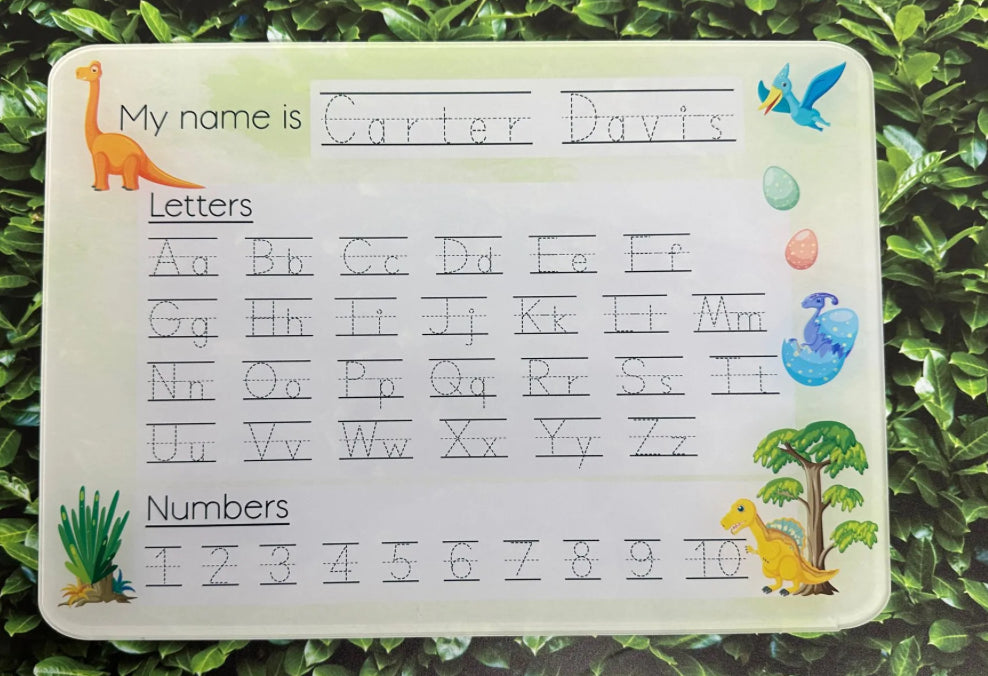 My name is Carter Davis
Letters
Aa Bb Cc Dd Ee Ff
Gg Hh Ii Jj Kk Ll Mm
Nn Oo Pp Qq Rr Ss Tt
Uu Vv Ww Xx Yy Zz
Numbers
1 2 3 4 5 6 7 8 9 10